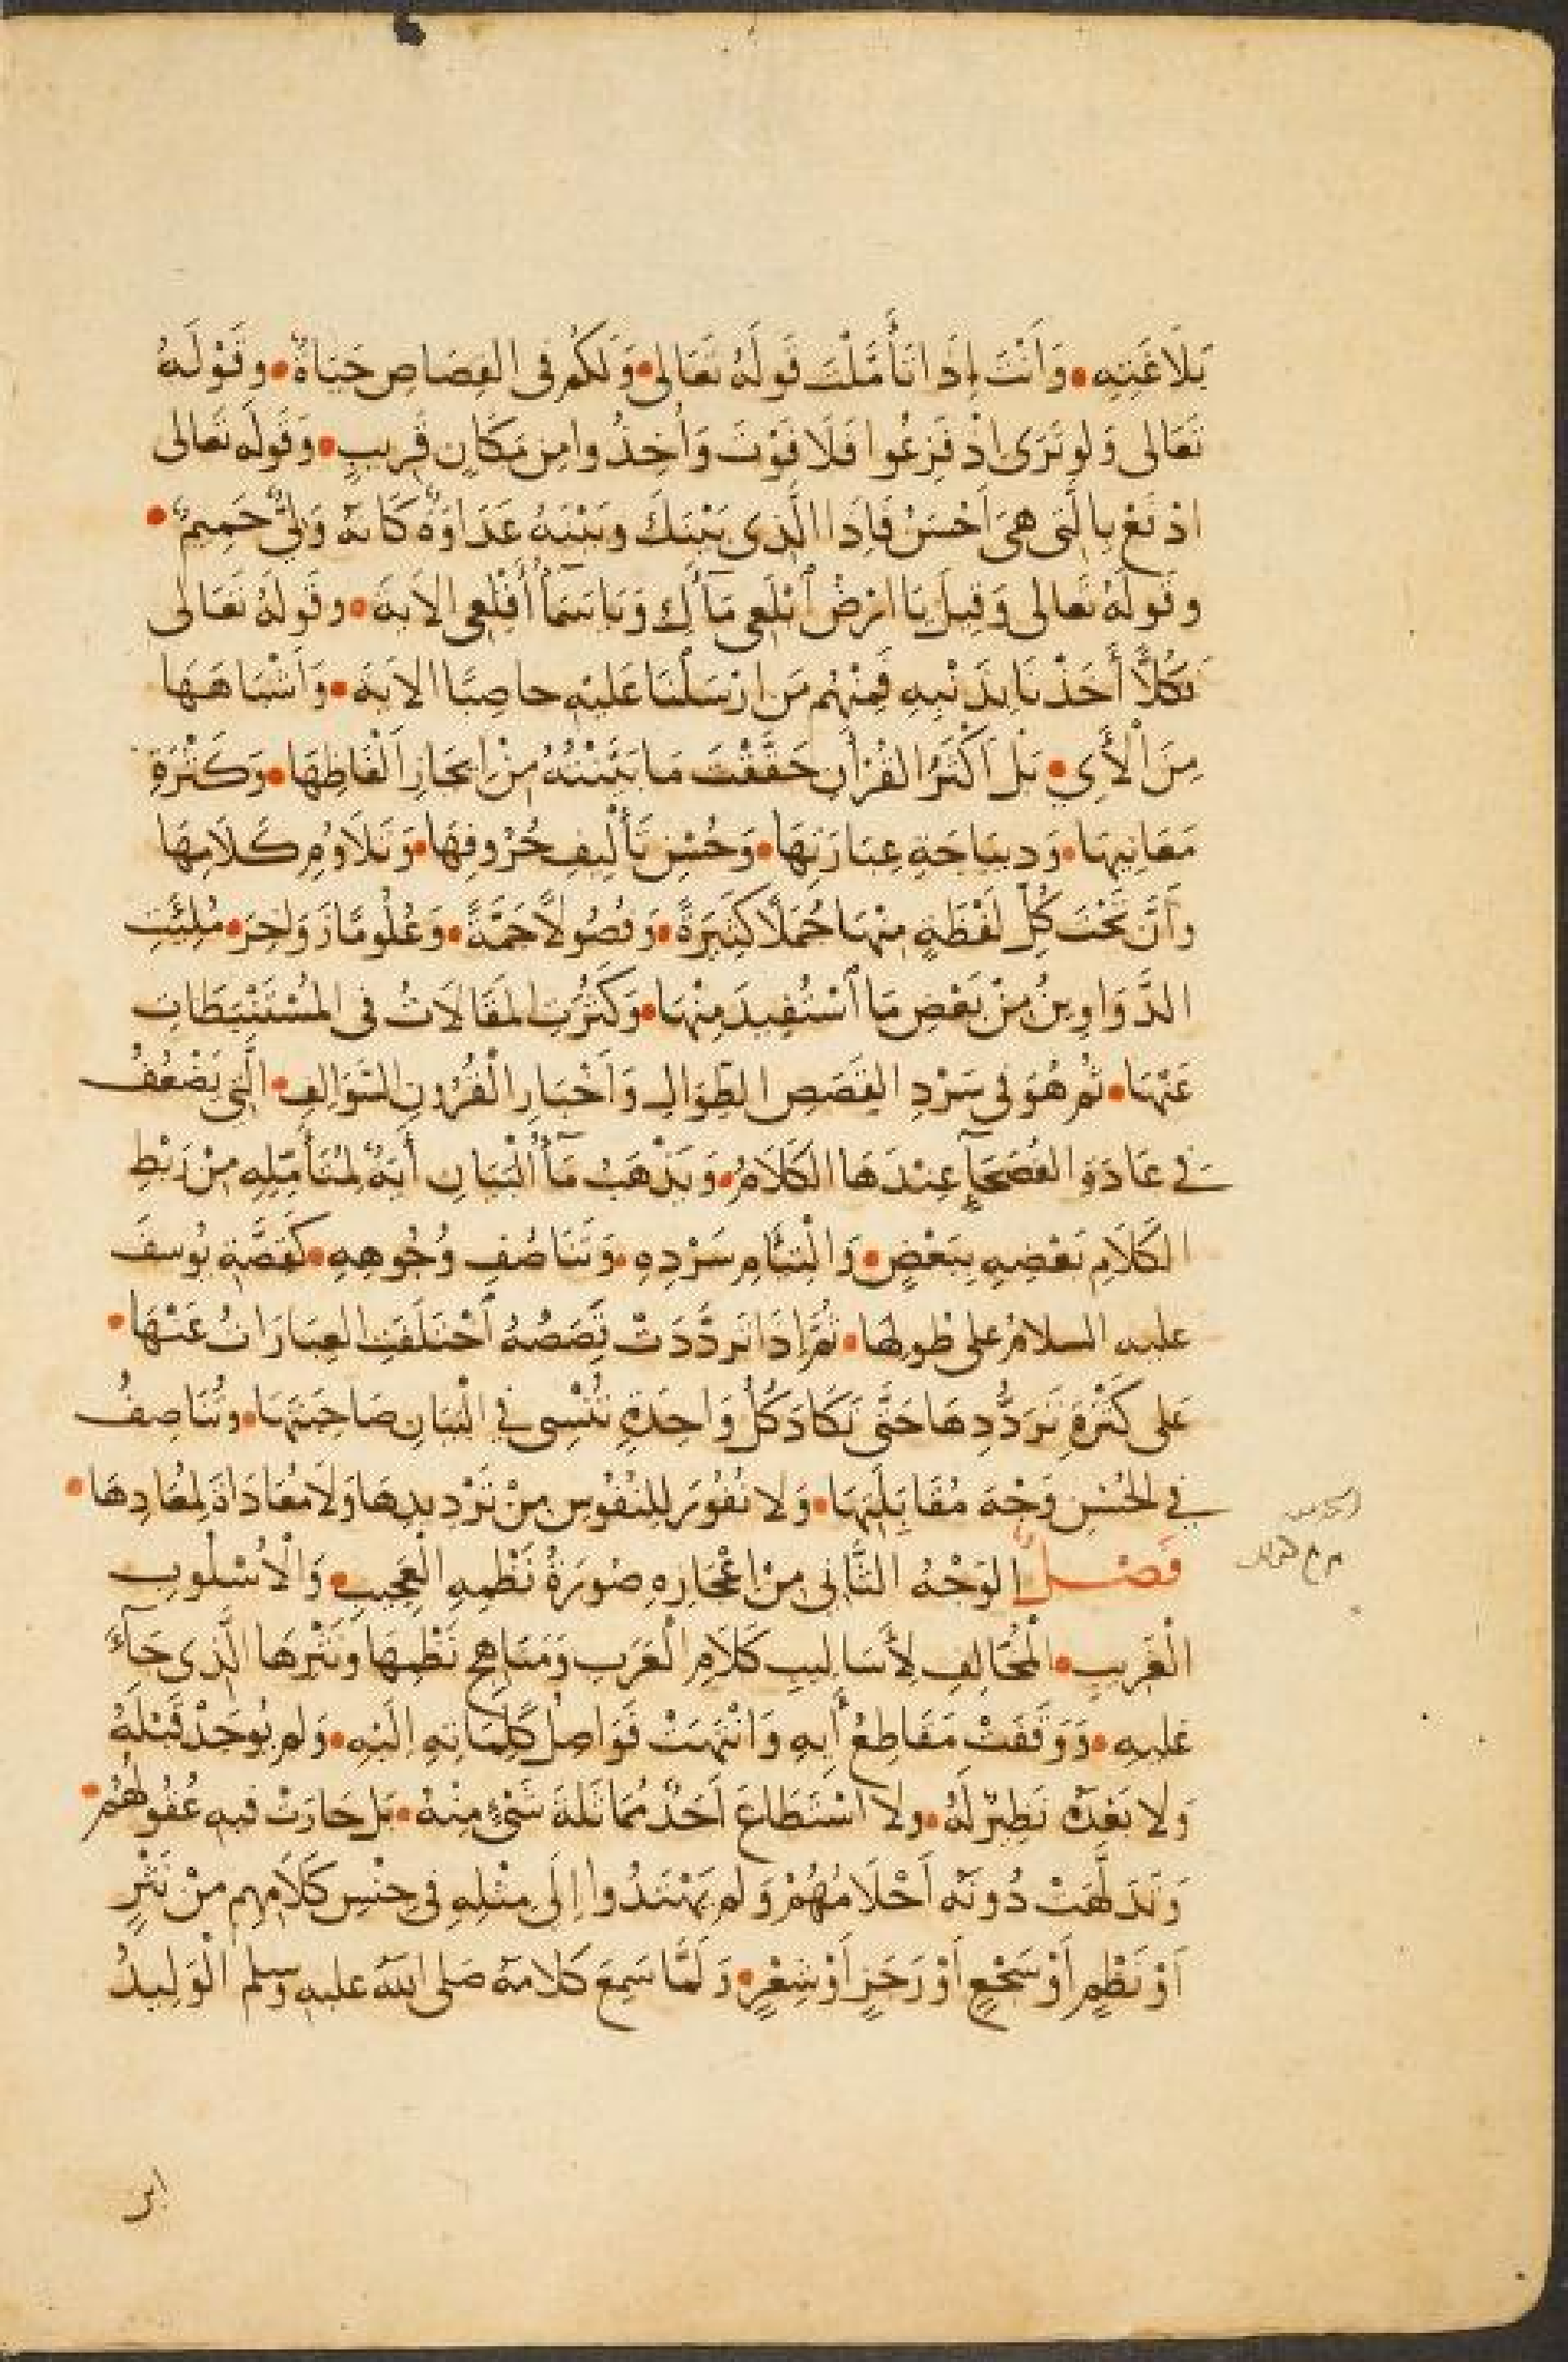 بَلَاغَتِهِ • وَأَنْتَ إِذَا تَأَمَّلْتَ قَوْلَهُ تَعَالَى • وَلَكُمْ فِى القِصَاصِ حَيَاةٌ • وقَوْلَهُ
تَعَالى وَلَو تَرَى اِذْ فَزِعُوا فَلَا فَوْتَ وَأُخِذُوا مِن مَكَانٍ قَرِيبٍ • وَقَولَه تَعالى
ادْفَعْ بِالَّتِى هِىَ اَحْسَنْ فَاِذَا الَّذِى بَيْنَكَ وبَيْنَهُ عَدَاوَةٌ كَانَهُ وَلِىٌّ حَمِيمٌ •
وقَولَهُ تَعالى وَقِيلَ يَا ارْضُ ٱبْلَعِى مَآءَكِ وَيَا سَمَآءُ أَقْلِعِى الايَةَ • وقَولَهُ تَعَالى
فكُلًّا أَخَذْنَا بِذَنْبِهِ فَمِنْهُم مَن ارْسَلْنَا عَلَيْهِ حاصِبًا الايَةَ • وَاَشْبَاهَهَا
مِنَ الْأَيِ • بَل اَكْثَرُ القُرْأنِ حَقَّقْتَ مَا بَيَّنْتُهُ مِنْ اِيجَازِ اَلْفَاظِهَا • وَكَثْرَةِ
مَعَانِيهَا • وَدِيبَاجَةِ عِبَارَتِهَا • وَحُسْنِ تَأْلِيفِ حُرُوفِهَا • وَتَلَاؤُمِ كَلَامِهَا
وَأَنَّ تَحْتَ كُلِّ لَفْظَةٍ مِنْهَا جُمَلًا كَثِيرَةً • وَفُصُولًا جَمَّةً • وَعُلُومًا زَوَاخِرَ • مُلِئَتِ
الدَّوَاوِينُ مِنْ بَعْضِ مَا ٱسْتُفِيدَ مِنْهَا • وَكَثُرَتِ المَقَالَاتُ فى المُسْتَنْبَطَاتِ
عَنْهَا • ثُم هُوَ فى سَرْدِ القِصَصِ الطِوَالِ وَاَخْبَارِ الْقُرُونِ السَّوَالِفِ • الَّتِى يَضْعُفُ
فى عَادَةِ الفُصَحَآءِ عِنْدَهَا الكَلَامُ • وَيَذْهَبُ مَآءُ الْبَيَانِ أيَةٌ لِمُتَأَمِّلِهِ مِنْ رَبْطِ
الكَلَامِ بَعْضِهِ بِبَعْضٍ • وَالْتِئَامِ سَرْدِهِ • وَتَنَاصُفِ وُجُوهِهِ • كَقِصَّةِ يُوسفَ
عليه السلامُ على طُولِهَا • ثُمَّ اِذَا تَردَّدَتْ قِصَصُهُ ٱخْتَلَفَتِ العِبَارَاتُ عَنْهَا •
عَلى كَثْرَةِ تَرَدُّدِهَا حَتَّى تَكَادَ كُلُّ وَاحِدَةٍ تُنْسِى فى الْبَيَانِ صَاحِبَتَهَا • وتُنَاصِفُ
فى الحُسْنِ وَجْهَ مُقَابِلَتِهَا • وَلا نُفُورَ لِلنُفُوسِ مِنْ تَرْدِيدِهَا وَلَا مُعَادَاةَ لِمُعَادِهَا •
فَصْلٌ الوَجْهُ الثَّانِى مِنْ اِعْجَازِهِ صُورَةُ نَظْمِهِ الْعَجِيبِ • وَالْاُسْلُوبِ
الْغَرِيبِ • الْمُخَالِفِ لِأَسَالِيبِ كَلَامِ الْعَرَبِ وَمَنَاهِجِ نَظْمِهَا وَنَثْرِهَا الَّذِى جَآءَ
عَلَيهِ • وَوَقَفَتْ مَقَاطِعُ أيِهِ وَانْتَهَتْ فَوَاصِلُ كَلِمَاتِهِ اِلَيْهِ • وَلم يُوجَدْ قَبْلَهُ
وَلا بَعْدَهُ نَظِيرٌ لَهُ • ولا اسْتَطَاعَ اَحَدٌ مُمَاثَلَةَ شَىْءٍ مِنْهُ • بَل حَارَتْ فيهِ عُقُولُهُمْ •
وَتَدَلَّهَتْ دُونَه اَحْلَامُهُمْ وَلم يَهْتَدُوا اِلَى مِثْلِهِ فى جِنْسِ كَلَامِهِم مِنْ نَثْرٍ
اَوْ نَظْمٍ أَوْ سَجْعٍ أَوْ رَجَزٍ اَوْ شِعْرٍ • وَلَمَّا سَمِعَ كَلَامَهُ صَلى الله عليه وسلم الْوَلِيدُ
ابن